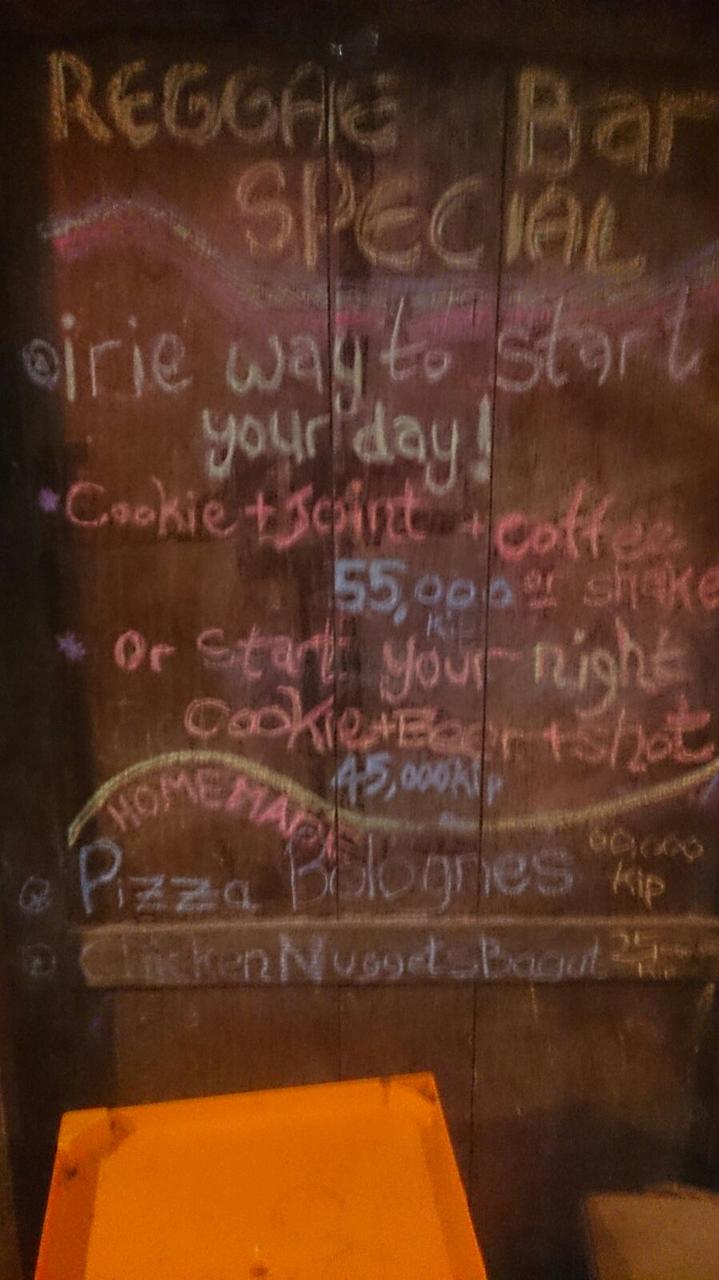 REGGAE Bar
SPECIAL
irie way to start
your day!
* Cookie + Joint + coffee
55,000 or shake
Kip
* Or Start your night
Cookie + Beer + shot
45,000 Kip
HOMEMADE
Pizza Bolognes 60,000
Kip
Chicken Nuggets Bagut